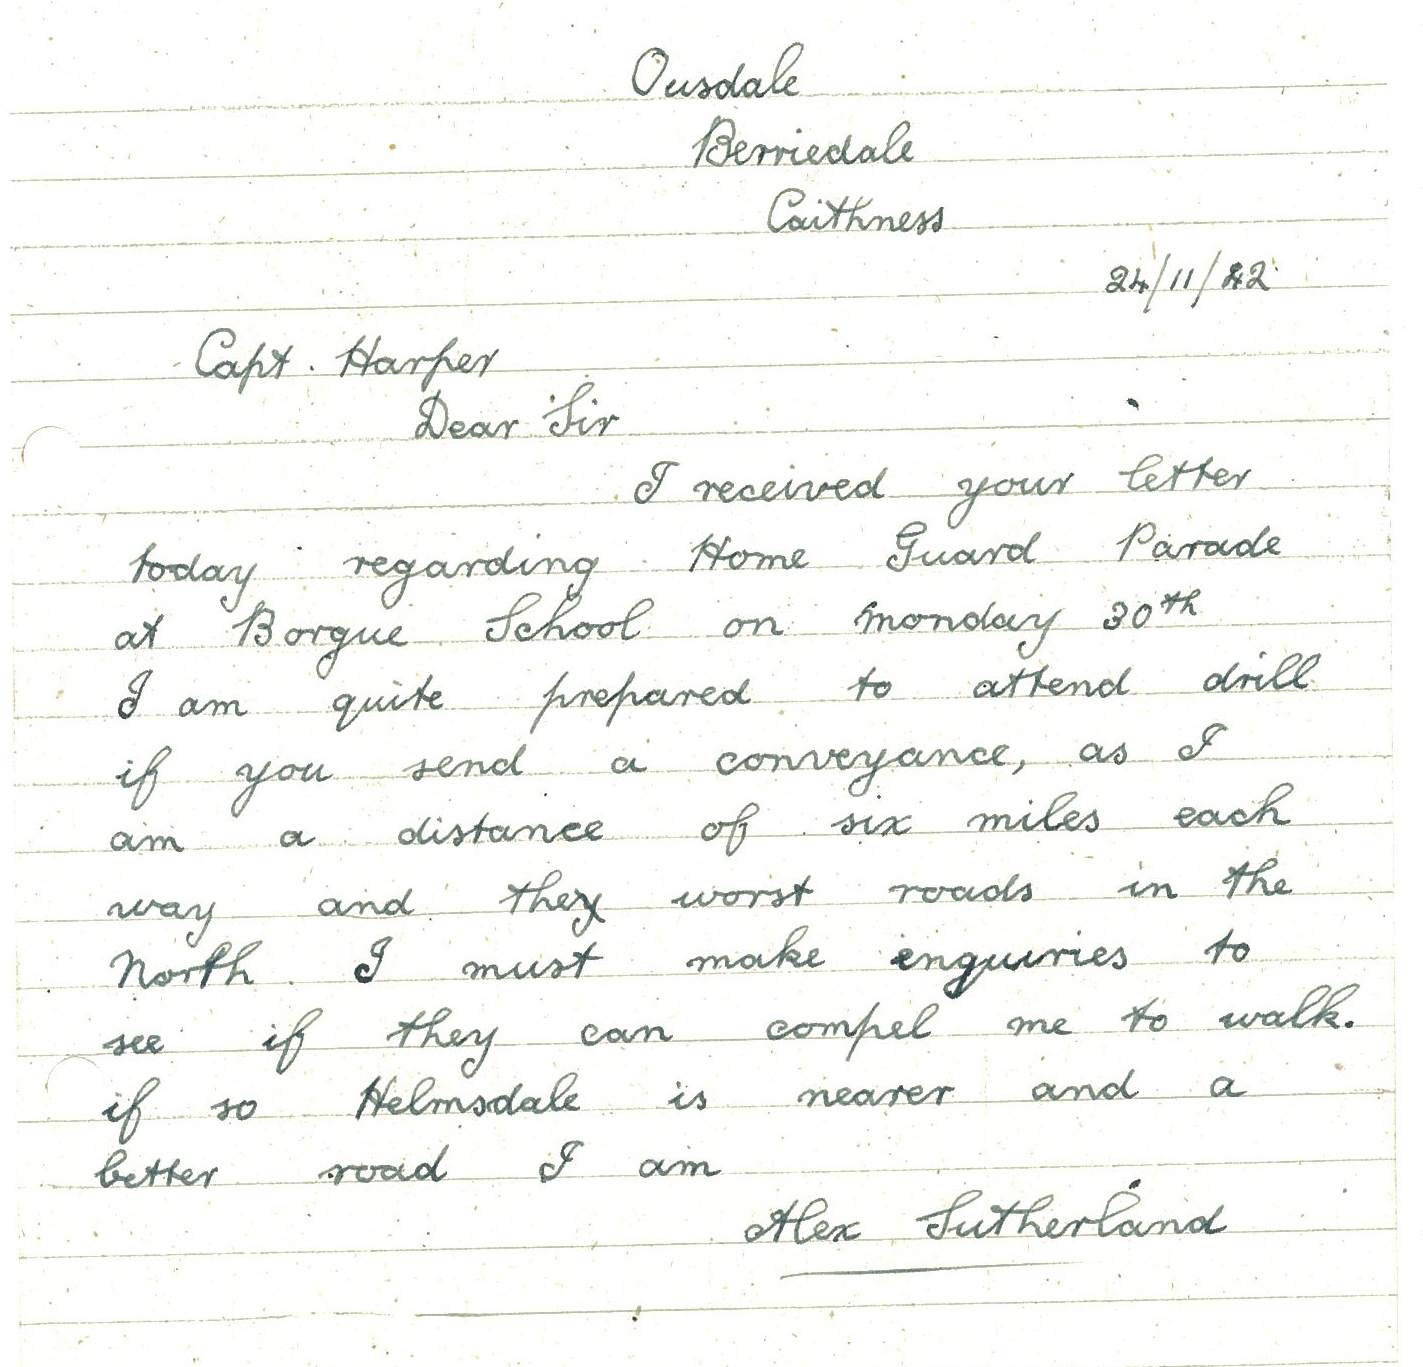 Ousdale
Berriedale
Caithness
24/11/42
Capt. Harper
Dear Sir
I received your letter
today regarding Home Guard Parade
at Borgue School on Monday 30th
I am quite prepared to attend drill
if you send a conveyance, as I
am a distance of six miles each
way and they worst roads in the
North I must make enquiries to
see if they can compel me to walk.
if so Helmsdale is nearer and a
better road I am
Alex Sutherland